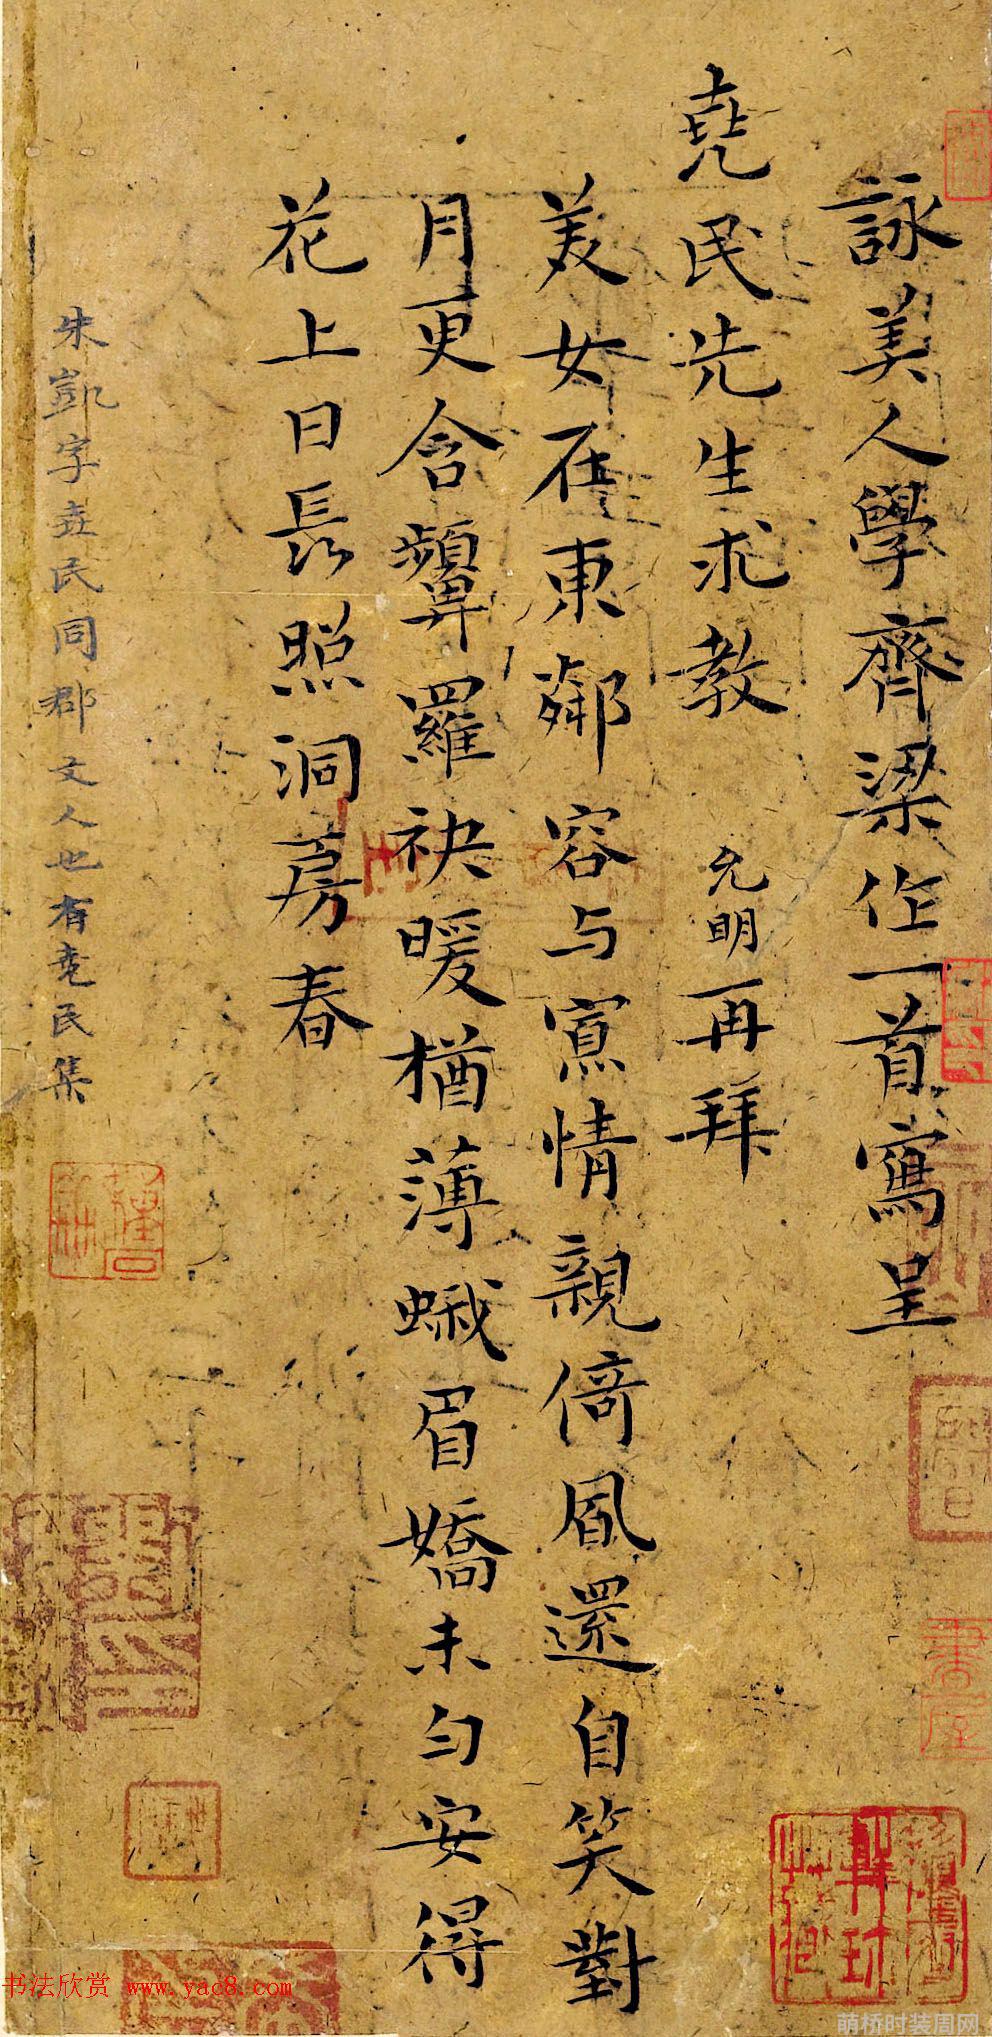 詠美人學齊梁作一首寫呈
堯民先生求教 允明再拜
美女在東鄰容与寘情親倚風還自笑對
月更含顰羅袂暖猶薄蛾眉嬌未勻安得
花上日長照洞房春
朱凱字堯民同郡文人也有堯民集
书法欣赏 www.yac8.com
萌桥时装周网